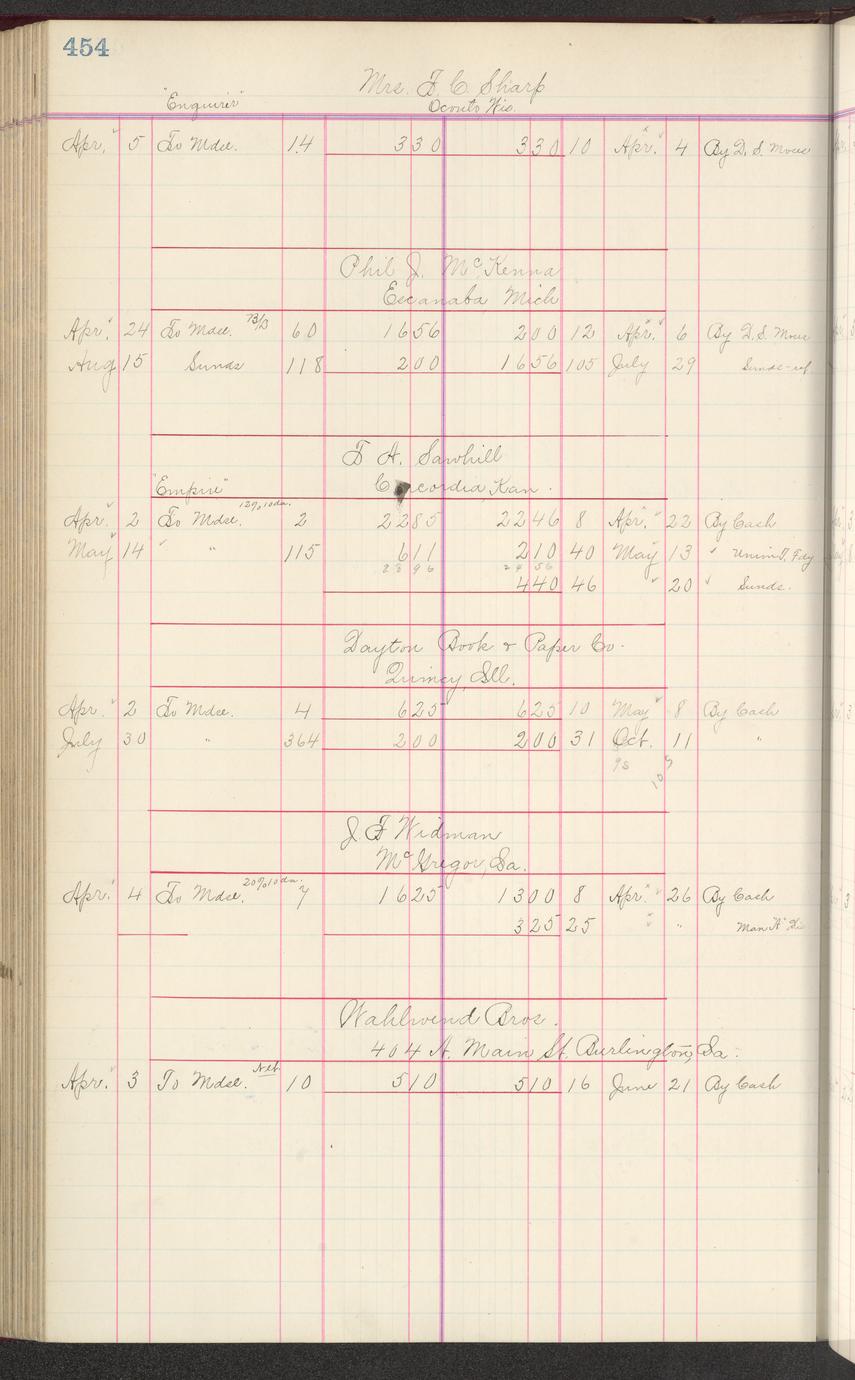 454
Mrs. F. C. Sharp
"Enquirer" Oconto Wis.
Apr. 5 To Mdse. 14 330 330 10 Apr. 4 By D. S. Mowe
Phil J. McKenna
Escanaba Mich
Apr. 24 To Mdse. 60 1656 200 12 Apr. 6 By D. S. Mowe
Aug 15 Sunds 118 200 1656 105 July 29 Sunds-ref
F A. Sawhill
"Empire" Concordia, Kan.
Apr. 2 To Mdse. 12% 10 da. 2 2285 2246 8 Apr. 22 By Cash
May 14 " " 115 611 210 40 May 13 " Union T. Fdy
2896 2456
440 46 " 20 " Sunds.
Dayton Book & Paper Co.
Quincy, Ill.
Apr. 2 To Mdse. 4 625 625 10 May 8 By Cash
July 30 " 364 200 200 31 Oct. 11 "
98
J. F Widman
McGregor, Ia.
Apr. 4 To Mdse. 20% 10 da. 7 1625 1300 8 Apr. 26 By Cash
325 25 " " Man "A" Dis
Wahlwend Bros.
404 N. Main St. Burlington, Ia.
Apr. 3 To Mdse. Net 10 510 510 16 June 21 By Cash